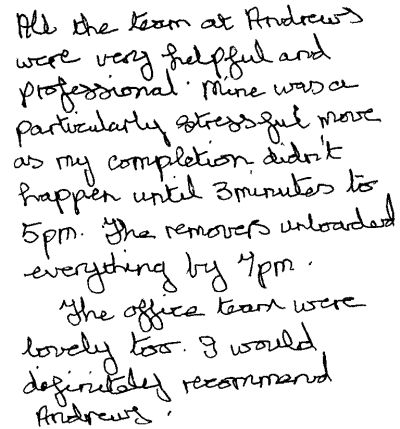 All the team at Andrews
were very helpful and
professional. Mine was a
particularly stressful move
as my completion didn't
happen until 3 minutes to
5pm. The removers unloaded
everything by 7pm.
The office team were
lovely too. I would
definitely recommend
Andrews.